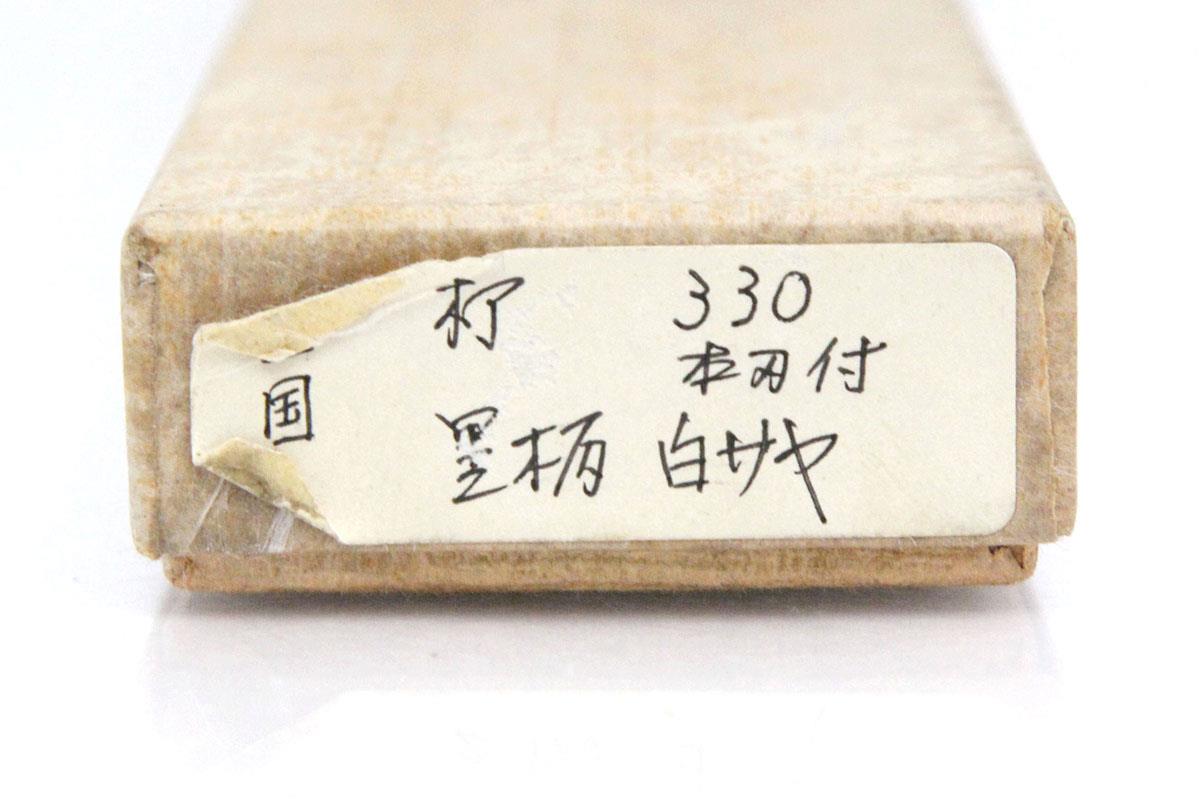 国
柳 330
本刃付
黒柄 白サヤ